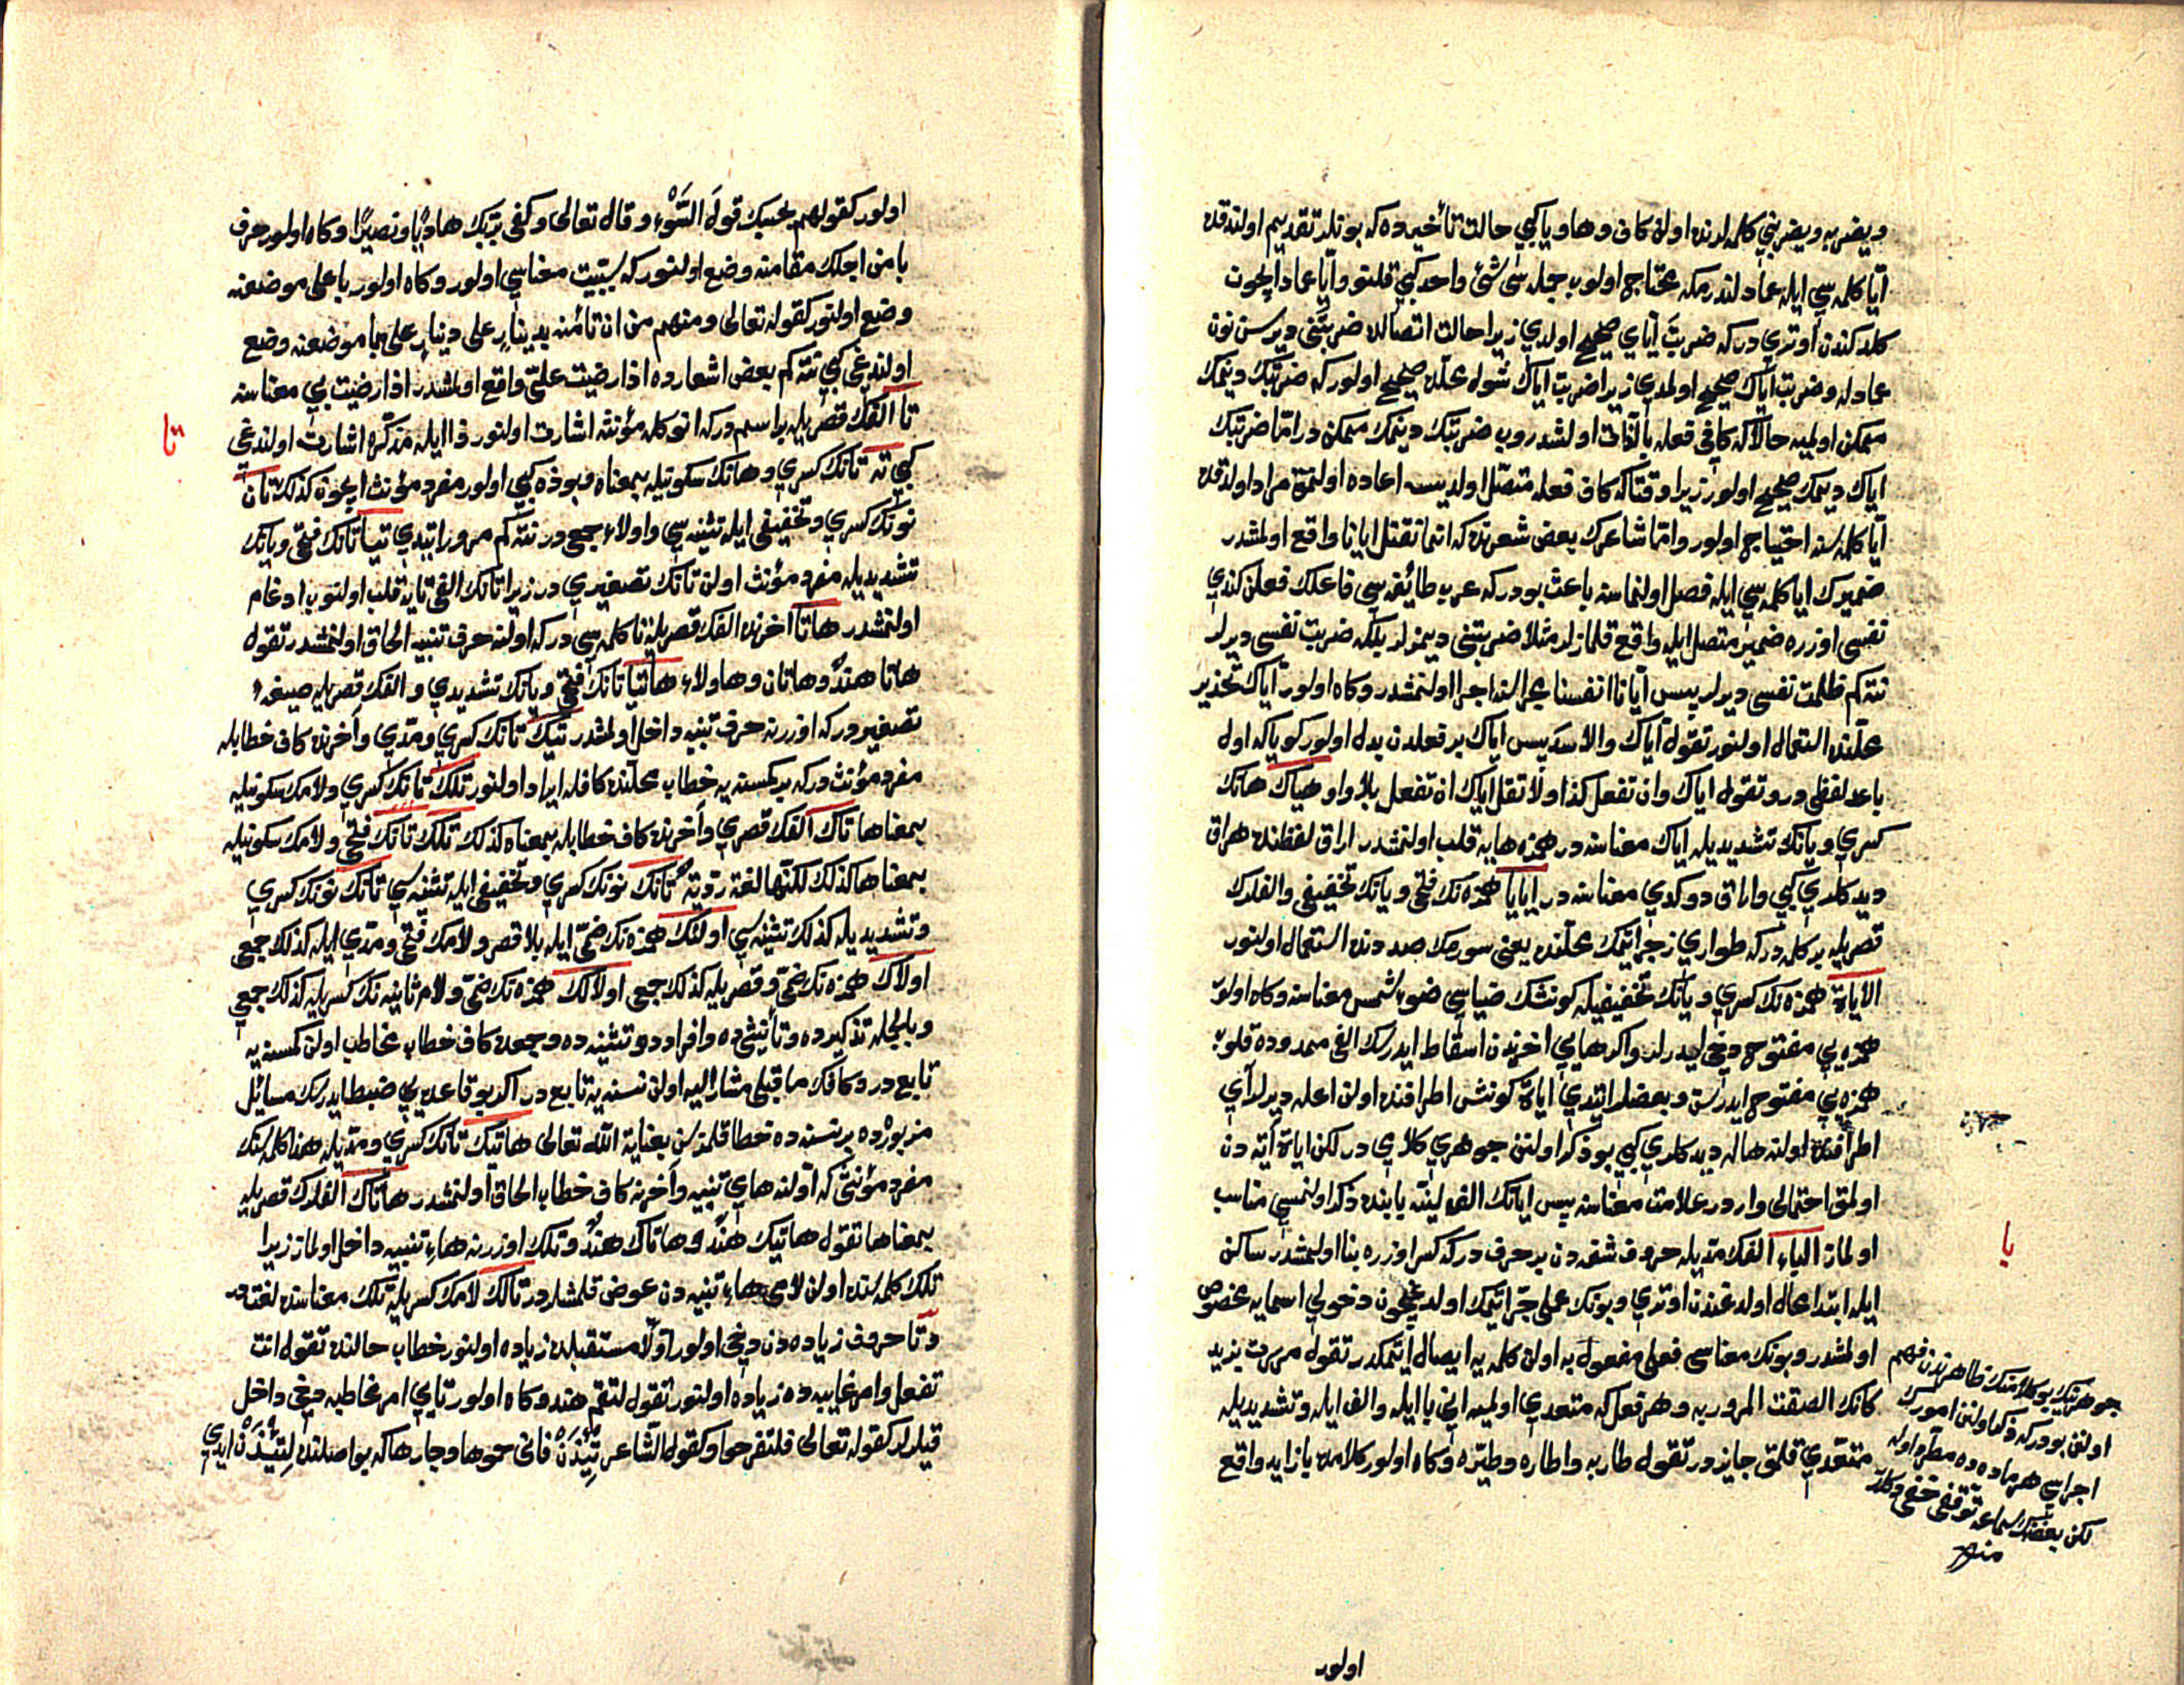 ويضربه ويضربني كلمه لرنده اولان كاف وها ويا كبي حالت تأخيرده كه بونلر تقديم اولندقده
ايا كلمه سي ايله عماد لندرمكه محتاج اولوب جمله سي شئ واحد كبي قلنور وايا عماد ايچون
كلدكندن اوتري دركه ضربت اياي صحيح اولدي زيرا حالت اتصالده ضربتني ديرسن نون
عماد له وضربت اياك صحيح اولمدي زيرا ضربت اياك شوله محلده صحيح اولور كه ضربتك ديمك
ممكن اوليه حالا كه كافي فعله بالذات اولشدروب ضربتك ديمك ممكن در اما ضربتك
اياك ديمك صحيح اولور زيرا وقتاكه كاف فعله متصل اولديسه اعاده اولنمق مراد اولدقده
ايا كلمه سنه احتياج اولور واما شاعرك بعض شعرنده كه انما نقتل ايانا واقع اولمشدر
ضميرك ايا كلمه سي ايله فصل اولنماسنه باعث بودركه عرب طائفه سي فاعلك فعلن كندي
نفسي اوزره ضمير متصل ايله واقع قلمازلر مثلا ضربتني ديمزلر بلكه ضربت نفسي ديرلر
نته كم ظلمت نفسي ديرلر پس ايانا انفسنا مجراسنه اجرا اولنمشدر وكاه اولور اياك تحذير
محلنده استعمال اولنور تقول اياك والاسد پس اياك بر فعلدن بدل اولور كويا كه اول
باعد لفظي در وتقول اياك وان تفعل كذا ولا تقل اياك ان تفعل بلا واو هياك هانك
كسري ويانك تشديديله اياك معناسنه در همزه هايه قلب اولنمشدر اراق لفظنده هراق
ديدكلري كبي واراق دوكدي معناسنه در ايايا همزه نك فتحي ويانك تخفيفي والفلرك
قصريله بر كلمه در كه طواري زجر ايتمك محلنده يعني سورمك صددنده استعمال اولنور
الاياة همزه نك كسري ويانك تخفيفيله كونشك ضياسي ضوء الشمس معناسنه وكاه اولور
همزه يي مفتوح دخي ايدرلر واكر هايي اخرندن اسقاط ايدرسك الفي ممدوده قلوب
همزه يي مفتوح ايدرسن وبعضلر ايتدي اياة كونش اطرافنده اولن اعله ديرلر آي
اطرافنده اولنه هاله ديدكلري كبي بو ذكر اولنن جوهري كلامي در لكن اياة آيه دن
اولمق احتمالي وار در علامت معناسنه پس ايانك الف لينه يابنده ذكر اولنمسي مناسب
اولماز الباء الفك مديله حروف شفه دن بر حرف دركه كسر اوزره بنا اولمشدر ساكن
ايله ابتدا محال اولدغندن اوتري وبونك عملي جر ايتمك اولدغيچون دخولي اسمايه مخصوص
اولمشدر وبونك معناسي فعلي مفعول به اولن كلمه يه ايصال ايتمكدر تقول مررت بزيد
كانك الصقت المرور به وهر فعل كه متعدي اوليه اني با ايله والف ايله وتشديديله
متعدي قلمق جايز در تقول طار به واطاره وطيره وكاه اولور كلامده با زايد واقع
جوهرينك بو كلامنك ظاهرندن فهم
اولنن بودركه ذكر اولنن امورك
اجراسي هر ماده ده مطرد اوله
لكن بعضنك سماعه توقفي خفي دكلدر
منه
يا
اولور
اولور كقولهم بحسبك قول السوء وقال تعالى وكفى بربك هاديا ونصيرا وكاه اولور حرف
با من اجلك مقامنه وضع اولنور كه سببيت معناسي اولور وكاه اولور با على موضعنه
وضع اولنور كقوله تعالى ومنهم من ان تأمنه بدينار على دينار على با موضعنه وضع
اولندغي كبي نته كم بعض اشعارده اذا رضيت علي واقع اولمشدر اذا رضيت بي معناسنه
تا الفك قصريله بر اسم دركه انوكله مؤنثه اشارت اولنور ذا ايله مذكره اشارت اولندغي
كبي ته تانك كسري وهانك سكونيله بمعناه وبو ذه كبي اولور مفرد مؤنث ايچون كذلك تان
نونك كسري وتخفيفي ايله تثنيه سي واولاء جمع در نته كم مرور ايتدي تيا تانك فتحي ويانك
تشديديله مفرد مؤنث اولن تانك تصغيري در زيرا تانك الفي يايه قلب اولنوب ادغام
اولنمشدر هاتا اخرنده الفك قصريله تا كلمه سي در كه اولنه حرف تنبيه الحاق اولنمشدر تقول
هاتا هند وهاتان وهاولاء هاتيا تانك فتحي ويانك تشديدي والفك قصريله صيغه
تصغيردر كه اوزرينه حرف تنبيه داخل اولمشدر تيك تانك كسري ومدي وآخرنده كاف خطابله
مفرد مؤنث دركه بر كمسنه يه خطاب محلنده كافله ايراد اولنور تلك تانك كسري ولامك سكونيله
بمعناها تاك الفك قصري وآخرنده كاف خطابله بمعناه كذلك تلك تانك فتحي ولامك سكونيله
بمعناها كذلك لكنها لغة ردية تانك نونك كسري وتخفيفي ايله تثنيه سي تانك نونك كسري
وتشديديله كذلك تثنيه سي اولئك همزه نك ضمي ايله بلا قصر ولامك فتحي ومدي ايله كذلك جمعي
اولاك همزه نك ضمي وقصريله كذلك جمعي اولالك همزه نك ضمي ولام ثانيه نك كسريله كذلك جمعي
وبالجمله تذكيرده وتأنيثده وافرادده وتثنيه ده وجمعده كاف خطاب مخاطب اولن كمسنه يه
تابع در وكافك ما قبلي مشار اليه اولن نسنه يه تابع در اكر بو قاعده يي ضبط ايدرسك مسائل
مزبوره ده بر نسنه ده خطا قلمزسن بعناية الله تعالى هاتيك تانك كسري ومديله هذا كلمه سنك
مفرد مؤنثي كه اولنه هاي تنبيه وآخرنه كاف خطاب الحاق اولنمشدر هاتاك الفلرك قصريله
بمعناها تقول هاتيك هند وهاتاك هند وتلك اوزرينه هاء تنبيه داخل اولماز زيرا
تلك كلمه سنده اولن لامي هاء تنبيه دن عوض قلمشلردر تالك لامك كسريله تلك معناسنده لغت در
وتا حروف زياده دن دخي اولور اولا مستقبلده زياده اولنور خطاب حالنده تقول انت
تفعل وامر غاييده ده زياده اولنور تقول لتقم هند وكاه اولور تايي امر مخاطبه دخي داخل
قيلرلر كقوله تعالى فلتفرحوا وكقول الشاعر تيذن فاني حموها وجارها كه بو اصلنده لتيذن ايدي
تا